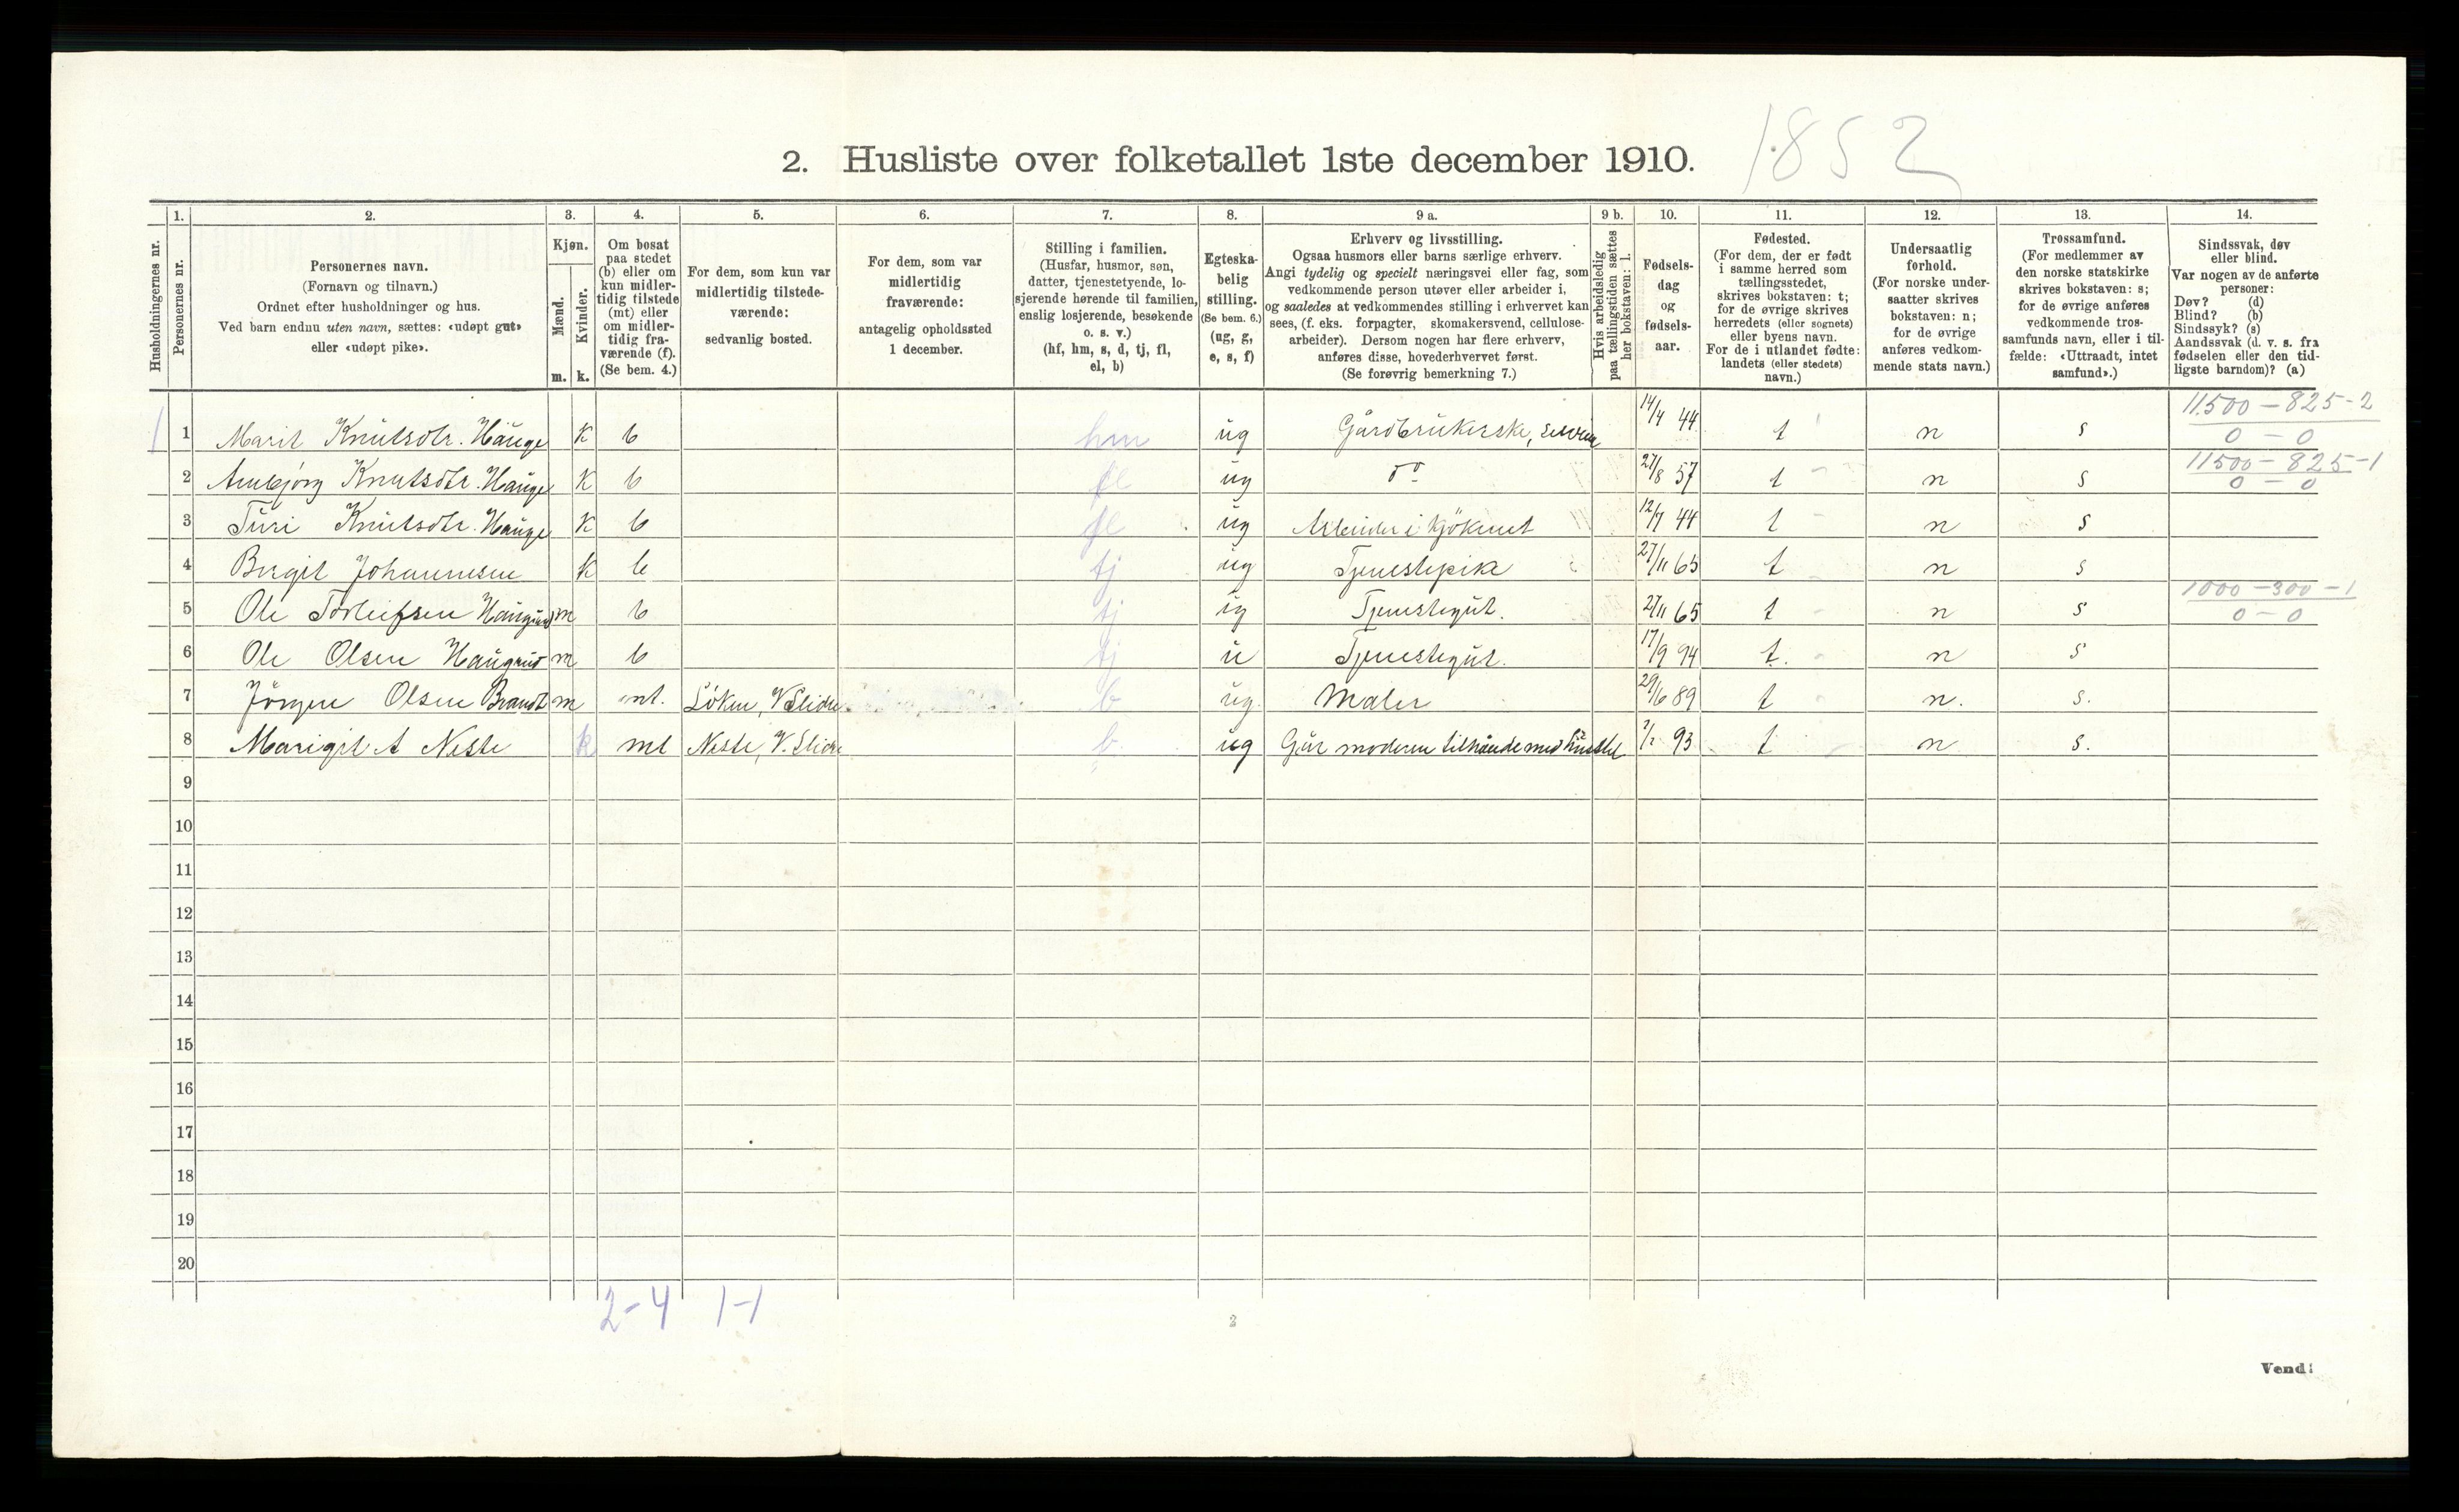 1852
2. Husliste over folketallet 1ste december 1910.
Husholdningernes nr.
1. 2. 3. 4. 5. 6. 7. 8. 9 a. 9 b. 10. 11. 12. 13. 14.
Personernes nr.
Personernes navn.
(Fornavn og tilnavn.)
Ordnet efter husholdninger og hus.
Ved barn endnu uten navn, sættes: «udøpt gut»
eller «udøpt pike».
Kjøn.
Mænd.
Kvinder.
m. k.
Om bosat
paa stedet
(b) eller om
kun midler-
tidig tilstede
(mt) eller
om midler-
tidig fra-
værende (f).
(Se bem. 4.)
For dem, som kun var
midlertidig tilstede-
værende:
sedvanlig bosted.
For dem, som var
midlertidig
fraværende:
antagelig opholdssted
1 december.
Stilling i familien.
(Husfar, husmor, søn,
datter, tjenestetyende, lo-
sjerende hørende til familien,
enslig losjerende, besøkende
o. s. v.)
(hf, hm, s, d, tj, fl,
el, b)
Egteska-
belig
stilling.
(Se bem. 6.)
(ug, g,
e, s, f)
Erhverv og livsstilling.
Ogsaa husmors eller barns særlige erhverv.
Angi tydelig og specielt næringsvei eller fag, som
vedkommende person utøver eller arbeider i,
og saaledes at vedkommendes stilling i erhvervet kan
sees, (f. eks. forpagter, skomakersvend, cellulose-
arbeider). Dersom nogen har flere erhverv,
anføres disse, hovederhvervet først.
(Se forøvrig bemerkning 7.)
Hvis arbeidsledig
paa tællingstiden sættes
her bokstaven: l.
Fødsels-
dag
og
fødsels-
aar.
Fødested.
(For dem, der er født
i samme herred som
tællingsstedet,
skrives bokstaven: t;
for de øvrige skrives
herredets (eller sognets)
eller byens navn.
For de i utlandet fødte:
landets (eller stedets)
navn.)
Undersaatlig
forhold.
(For norske under-
saatter skrives
bokstaven: n;
for de øvrige
anføres vedkom-
mende stats navn.)
Trossamfund.
(For medlemmer av
den norske statskirke
skrives bokstaven: s;
for de øvrige anføres
vedkommende tros-
samfunds navn, eller i til-
fælde: «Uttraadt, intet
samfund».)
Sindssvak, døv
eller blind.
Var nogen av de anførte
personer:
Døv? (d)
Blind? (b)
Sindssyk? (s)
Aandssvak (d. v. s. fra
fødselen eller den tid-
ligste barndom)? (a)
11500 - 825 - 2
1 1 Marit Knutsdtr. Hauge k b hm ug Gårdbrukerske, 14/4 44 t n s 0 - 0
11500 - 825 - 1
2 Knutsdtr. Hauge k b fl ug do 27/8 57 t n s 0 - 0
3 Turi Knutsdtr. Hauge k b fl ug Arbeider i kjökenet 12/7 44 t n s
4 Johannesen k b tj ug Tjenestepike 27/11 65 t n s
1000 - 300 - 1
5 Ole Torleifsen m b tj ug Tjenestegut. 27/11 65 t n s 0 - 0
6 Ole Olsen Haugrud m b tj u Tjenestegut. 17/9 94 t. n s
7 Jörgen Olsen Brandt m mt. Löken, V Slidre b ug. Maler 29/6 89 t n. s.
8 Marigit A Neste k mt Neste, V. Slidre b ug Går moderen tilhånde med 93 t n s.
9
10
11
12
13
14
15
16
17
18
19
20
2-4 1-1
Vend!